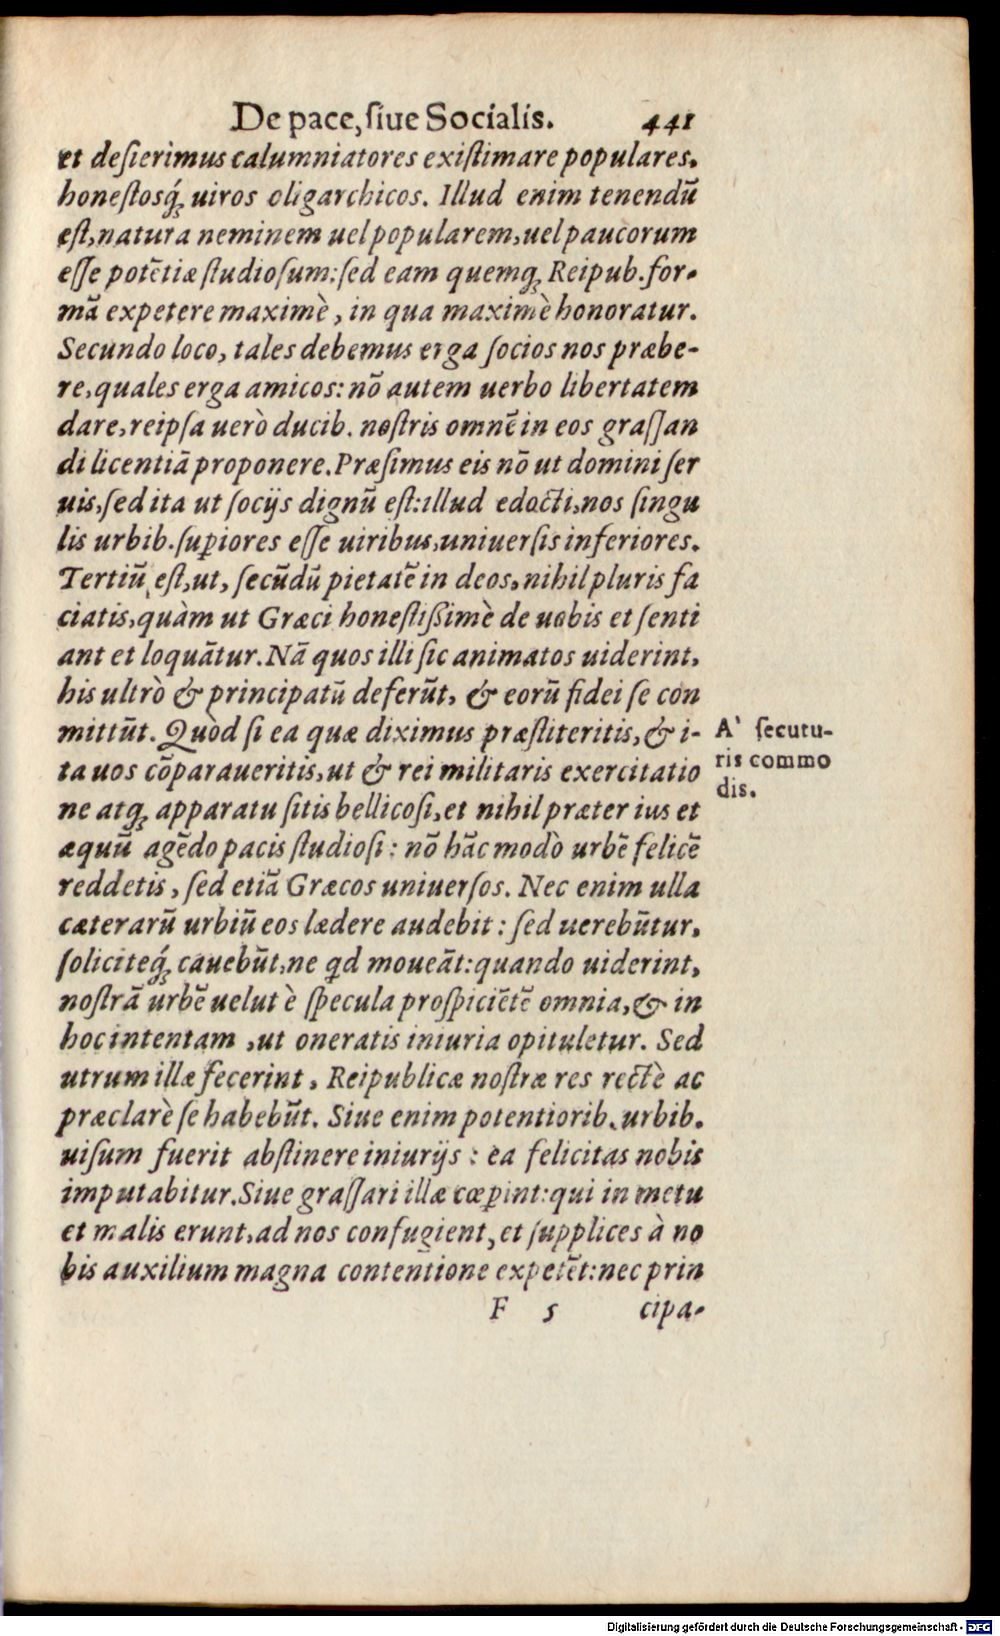 De pace, ſiue Socialis. 441
et deſierimus calumniatores exiſtimare populares,
honeſtosq́; uiros oligarchicos. Illud enim tenendũ
eſt, natura neminem uel popularem, uel paucorum
eſſe potẽtiæ ſtudioſum: ſed eam quemq; Reipub. for-
mã expetere maximè, in qua maximè honoratur.
Secundo loco, tales debemus erga ſocios nos præbe-
re, quales erga amicos: nõ autem uerbo libertatem
dare, reipſa uerò ducib. noſtris omnẽ in eos graſſan
di licentiã proponere. Præſimus eis nõ ut domini ſer
uis, ſed ita ut ſocijs dignũ eſt: illud edocti, nos ſingu
lis urbib. ſuꝑiores eſſe uiribus, uniuerſis inferiores.
Tertiũ eſt, ut, ſecũdũ pietatẽ in deos, nihil pluris fa
ciatis, quàm ut Græci honeſtißimè de uobis et ſenti
ant et loquãtur. Nã quos illi ſic animatos uiderint,
his ultrò & principatũ deferũt, & eorũ fidei ſe con
mittũt. Quòd ſi ea quæ diximus præſtiteritis, & i-
ta uos cõparaueritis, ut & rei militaris exercitatio
ne atq; apparatu ſitis bellicoſi, et nihil præter ius et
æquũ agẽdo pacis ſtudioſi: nõ hãc modò urbẽ felicẽ
reddetis, ſed etiã Græcos uniuerſos. Nec enim ulla
cæterarũ urbiũ eos lædere audebit: ſed uerebũtur,
ſoliciteq́; cauebũt, ne qd moueãt: quando uiderint,
noſtrã urbẽ uelut è ſpecula proſpiciẽtẽ omnia, & in
hoc intentam, ut oneratis iniuria opituletur. Sed
utrum illæ fecerint, Reipublicæ noſtræ res rectè ac
præclarè ſe habebũt. Siue enim potentiorib. urbib.
uiſum fuerit abſtinere iniurijs: ea felicitas nobis
imputabitur. Siue graſſari illæ cœꝑint: qui in metu
et malis erunt, ad nos confugient, et ſupplices à no
bis auxilium magna contentione expetẽt: nec prin
F 5 cipa-
A' ſecutu-
ris commo
dis.
Digitalisierung gefördert durch die Deutsche Forschungsgemeinschaft - DFG